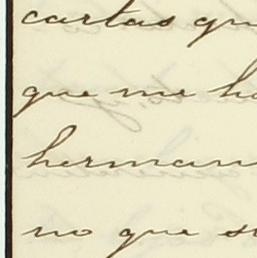 cartas qu
que me ha
herman
no que s